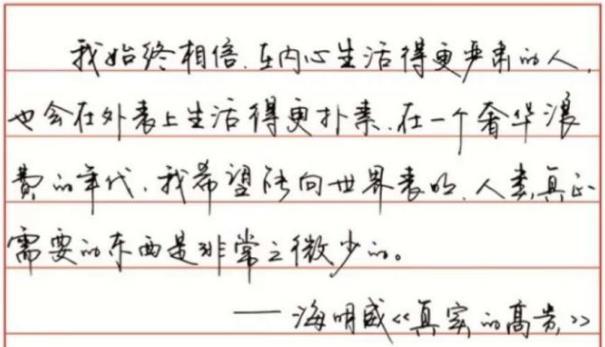 我始终相信、在内心生活得更严肃的人,
也会在外表上生活得更朴素.在一个奢华浪
费的年代、我希望能向世界表明、人类真正
需要的东西是非常之微少的。
——海明威《真实的高贵》